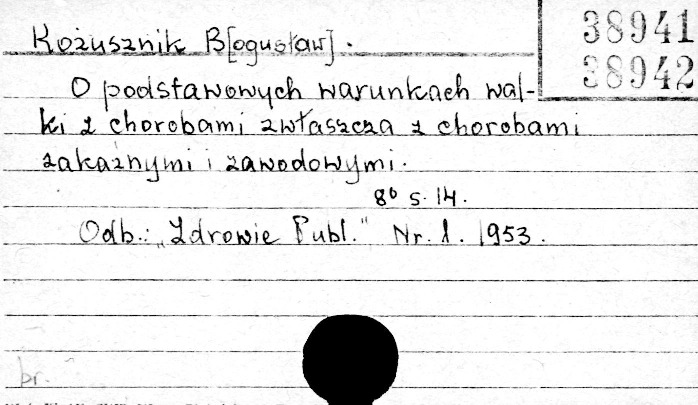 Kożusznik B[ogusław].
38941
38942
O podstawowych warunkach wal-
ki z chorobami zwłaszcza z chorobami
zakaźnymi i zawodowymi.
8° s. 14.
Odb.: "Zdrowie Publ." Nr. 1. 1953.
br.